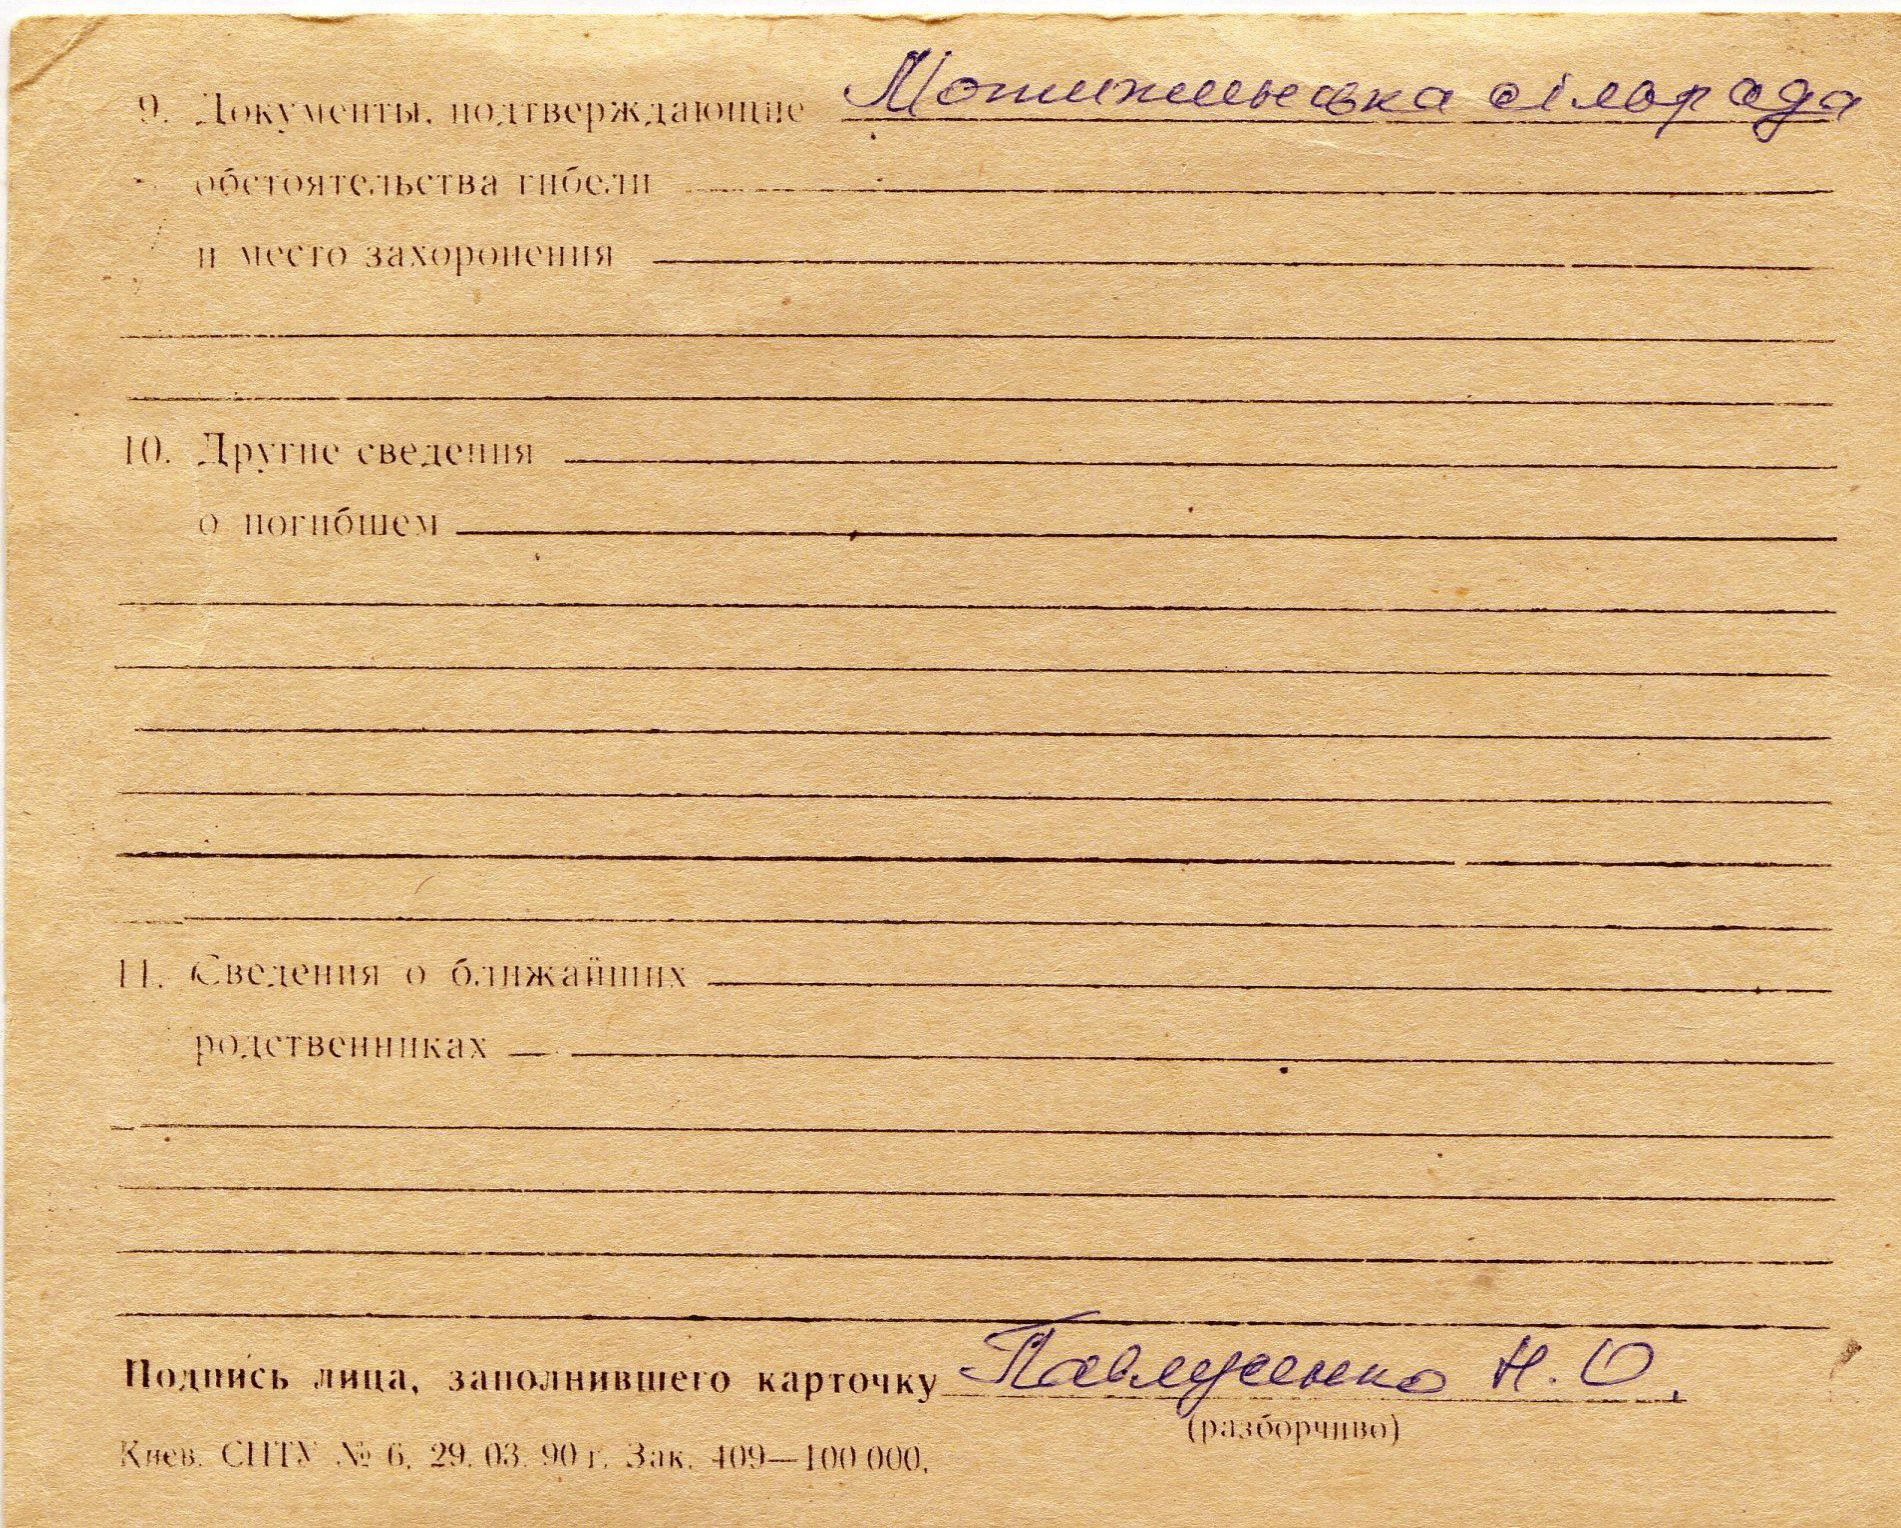 9. Документы, подтверждающие Мотижинська сільрада
обстоятельства гибели
и место захоронения
10. Другие сведения
о погибшем
11. Сведения о ближайших
родственниках
Подпись лица, заполнившего карточку Павлученко Н. О.
(разборчиво)
Киев. СПТУ № 6. 29. 03. 90 г. Зак. 409—100 000.